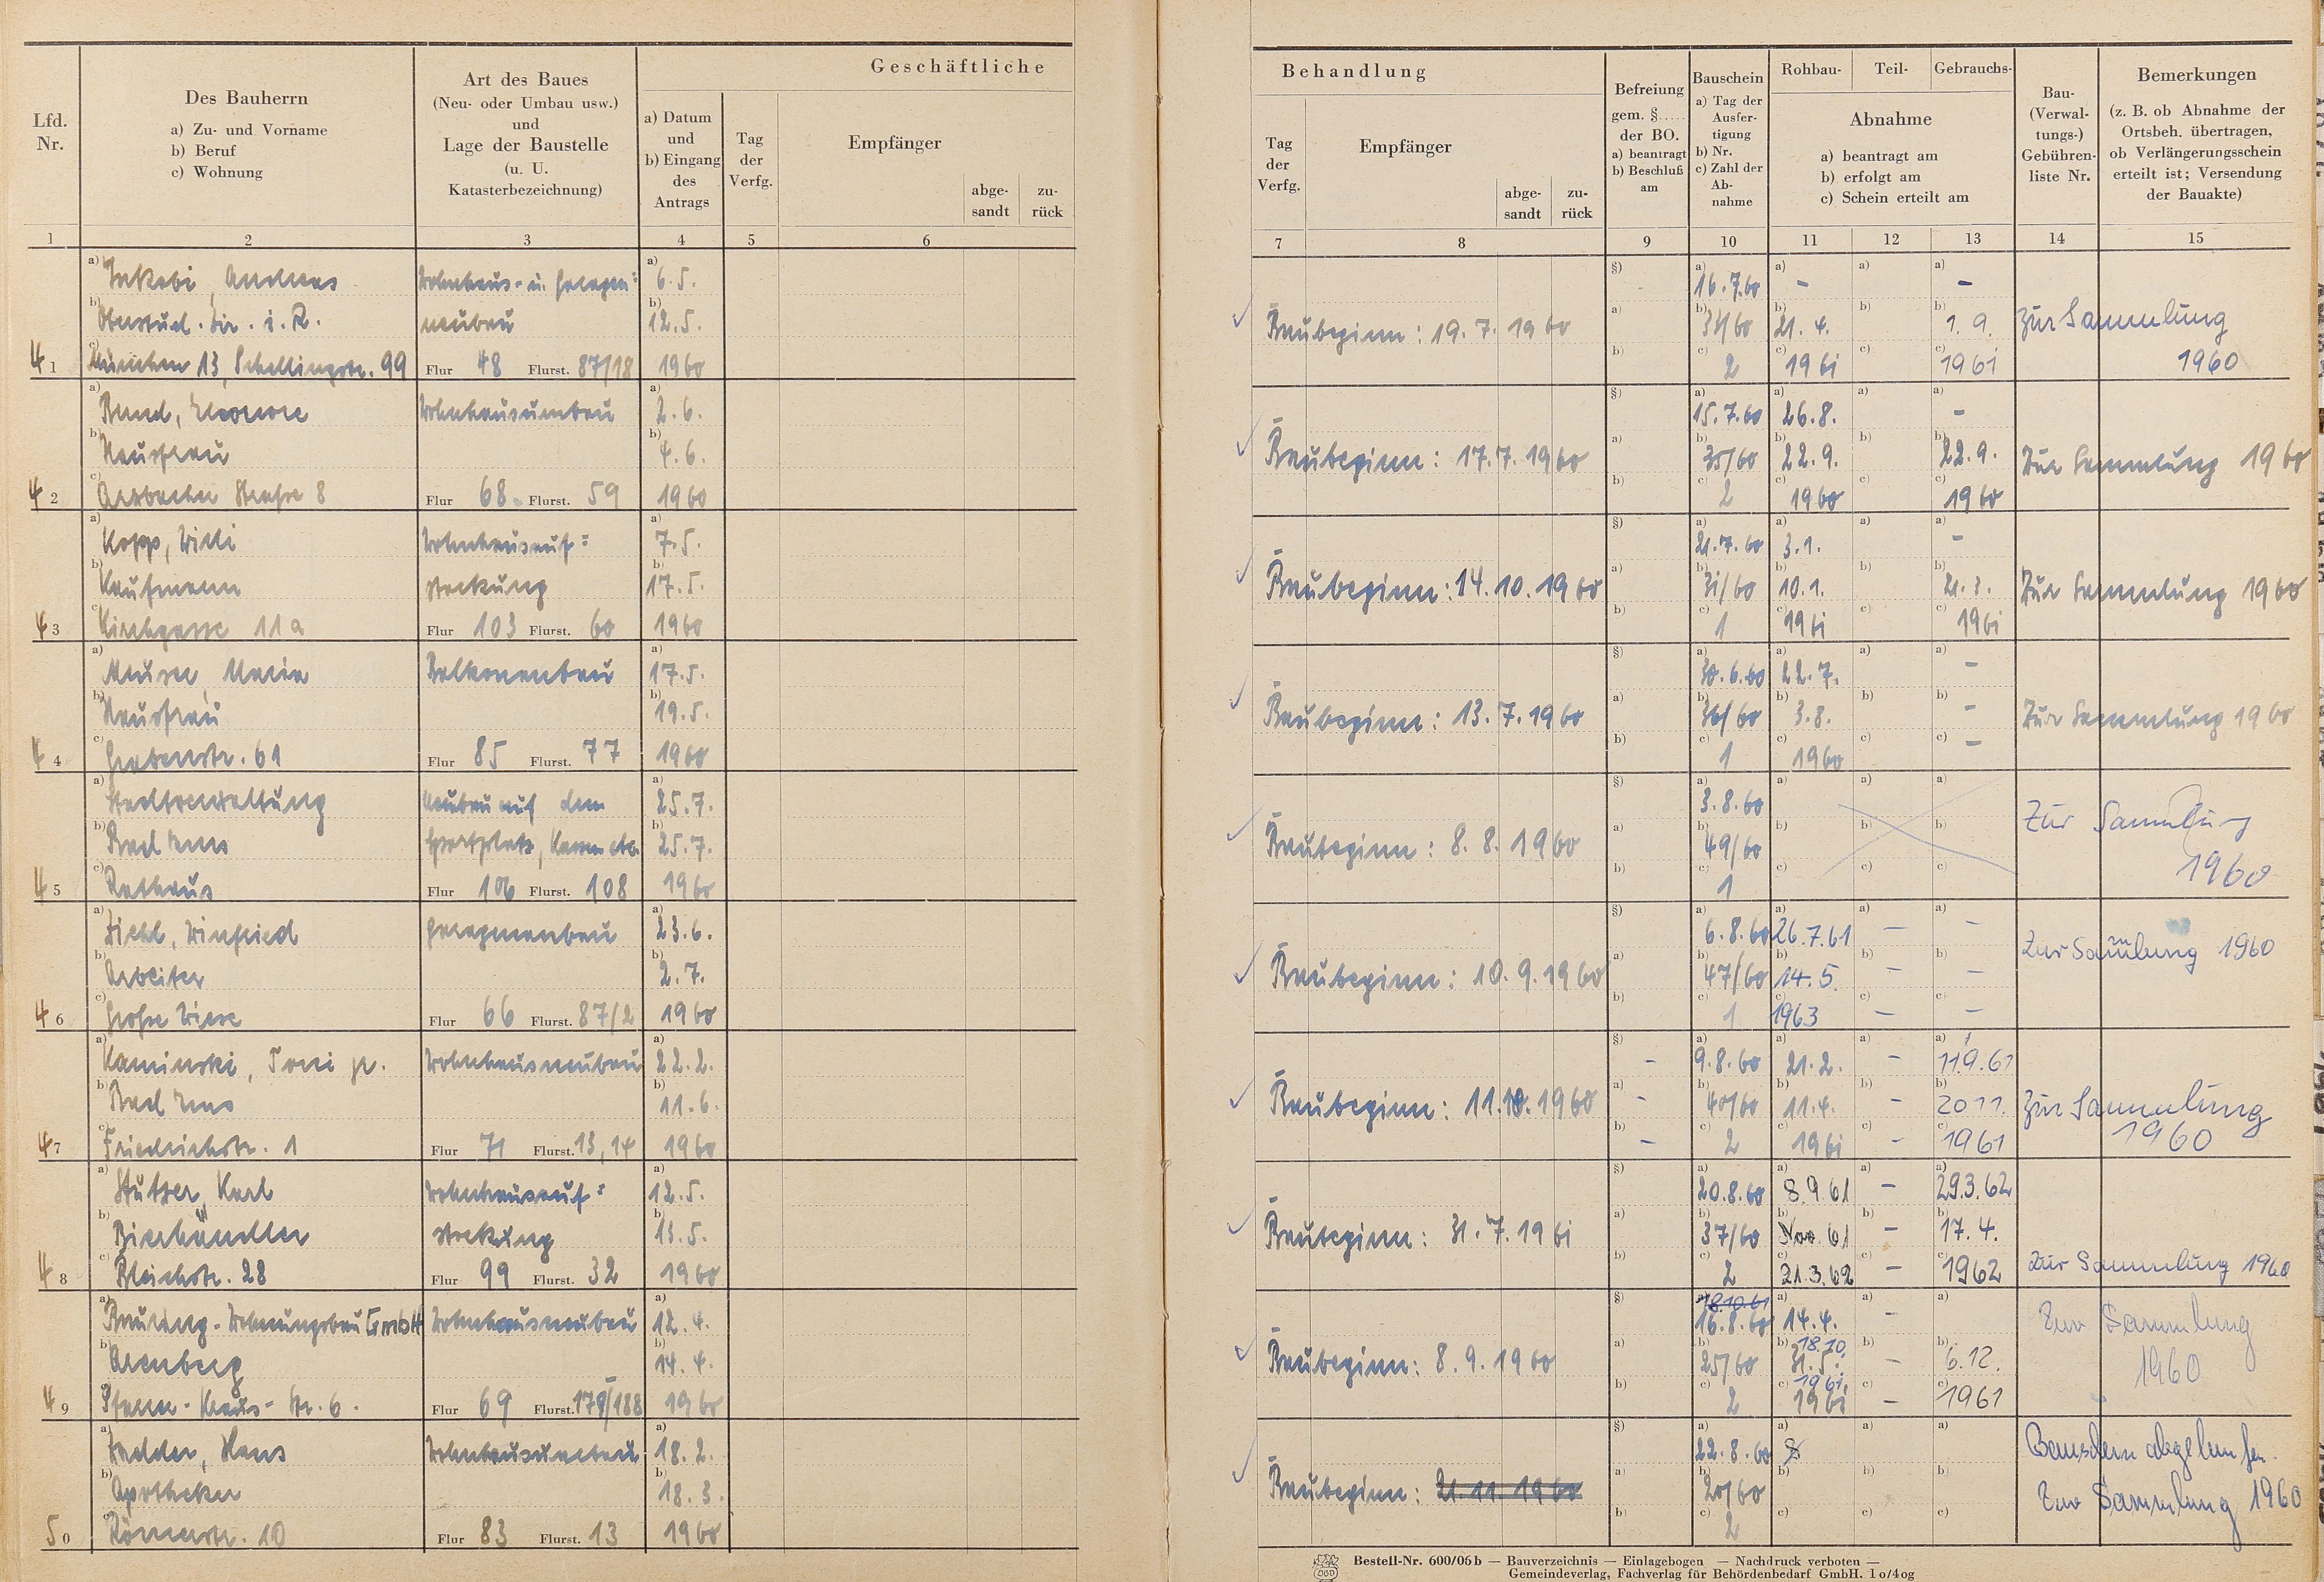 Geschäftliche
Behandlung
Lfd. Nr.
Des Bauherrn
a) Zu- und Vorname
b) Beruf
c) Wohnung
Art des Baues
(Neu- oder Umbau usw.)
und
Lage der Baustelle
(u. U.
Katasterbezeichnung)
a) Datum
und
b) Eingang
des
Antrags
Tag
der
Verfg.
Empfänger
abge-
sandt
zu-
rück
Tag
der
Verfg.
Empfänger
abge-
sandt
zu-
rück
Befreiung
gem. §.....
der BO.
a) beantragt
b) Beschluß
am
Bauschein
a) Tag der
Ausfer-
tigung
b) Nr.
c) Zahl der
Ab-
nahme
Rohbau-
Teil-
Gebrauchs-
Abnahme
a) beantragt am
b) erfolgt am
c) Schein erteilt am
Bau-
(Verwal-
tungs-)
Gebühren-
liste Nr.
Bemerkungen
(z. B. ob Abnahme der
Ortsbeh. übertragen,
ob Verlängerungsschein
erteilt ist; Versendung
der Bauakte)
1 2 3 4 5 6 7 8 9 10 11 12 13 14 15
a) Jakobi, Andreas Wohnhaus- u. Garagen= a) 6.5. §) a) 16.7.60 a) - a) a) -
b) Oberstud. Dir. i. R. neubau b) 12.5. Baubeginn: 19.7.1960 a) b) 34/60 b) 21.4. b) b) 1.9. Zur Sammlung
41 c) München 13, Schellingstr. 99 Flur 48 Flurst. 87/18 1960 b) c) 2 c) 1961 c) c) 1961 1960
a) Bund, Eleonore Wohnhausumbau a) 2.6. §) a) 15.7.60 a) 26.8. a) a) -
b) Hausfrau b) 4.6. Baubeginn: 17.7.1960 a) b) 35/60 b) 22.9. b) b) 22.9. Zur Sammlung 1960
42 c) Arzbacher Straße 8 Flur 68 Flurst. 59 1960 b) c) 2 c) 1960 c) c) 1960
a) Kopp, Willi Wohnhausauf= a) 7.5. §) a) 21.7.60 a) 3.1. a) a) -
b) Kaufmann stockung b) 17.5. Baubeginn: 14.10.1960 a) b) 31/60 b) 10.1. b) b) 21.3. Zur Sammlung 1960
43 c) Kirchgasse 11a Flur 103 Flurst. 60 1960 b) c) 1 c) 1961 c) c) 1961
a) Maria Balkonanbau a) 17.5. §) a) 30.6.60 a) 22.7. a) a) -
b) Hausfrau b) 19.5. Baubeginn: 13.7.1960 a) b) 36/60 b) 3.8. b) b) - Zur Sammlung 1960
44 c) Grabenstr. 61 Flur 85 Flurst. 77 1960 b) c) 1 c) 1960 c) c) -
a) Stadtverwaltung Neubau auf dem a) 25.7. §) a) 3.8.60 a) a) a)
b) Bad Ems Sportplatz, b) 25.7. Baubeginn: 8.8.1960 a) b) 49/60 b) b) b) Zur Sammlung
45 c) Rathaus Flur 106 Flurst. 108 1960 b) c) 1 c) c) c) 1960
a) Diehl, Winfried Garagenanbau a) 23.6. §) a) 6.8.60 a) 26.7.61 a) - a) -
b) Arbeiter b) 2.7. Baubeginn: 10.9.1960 a) b) 47/60 b) 14.5. b) - b) - Zur Sammlung 1960
46 c) Große Wiese Flur 66 Flurst. 87/2 1960 b) c) 1 c) 1963 c) - c) -
a) Kaminski, Toni jr. Wohnhausneubau a) 22.2. §) - a) 9.8.60 a) 21.2. a) - a) 11.9.61
b) Bad Ems b) 11.6. Baubeginn: 11.10.1960 a) - b) 40/60 b) 11.4. b) - b) 20.11. Zur Sammlung
47 c) Friedrichstr. 1 Flur 71 Flurst. 13, 14 1960 b) - c) 2 c) 1961 c) - c) 1961 1960
a) Stutzer, Karl Wohnhausauf= a) 12.5. §) a) 20.8.60 a) 8.9.61 a) - a) 29.3.62
b) Bierhändler stockung b) 13.5. Baubeginn: 31.7.1961 a) b) 37/60 b) Nov. 61 b) - b) 17.4.
48 c) Bleichstr. 28 Flur 99 Flurst. 32 1960 b) c) 2 c) 21.3.62 c) - c) 1962 Zur Sammlung 1960
a) Bauring-Wohnungsbau GmbH Wohnhausneubau a) 12.4. §) a) 18.10.61 16.8.60 a) 14.4. a) - a) Zur Sammlung
b) Arenberg b) 14.4. Baubeginn: 8.9.1960 a) b) 25/60 b) 18.10. 31.5. b) - b) 6.12. 1960
49 c) Pfarrer-Kraus-Str. 6. Flur 69 Flurst. 179/188 1960 b) c) 2 c) 1961. 1961 c) - c) 1961
a) Hans Wohnhausumbau a) 18.2. §) a) 22.8.60 a) a) a) Bauschein abgelaufen.
b) Apotheker b) 18.3. Baubeginn: 21.11.1960 a) b) 20/60 b) b) b) Zur Sammlung 1960
50 c) Römerstr. 10 Flur 83 Flurst. 13 1960 b) c) 2 c) c) c)
Bestell-Nr. 600/06 b — Bauverzeichnis — Einlagebogen — Nachdruck verboten —
Gemeindeverlag, Fachverlag für Behördenbedarf GmbH. 1o/4og